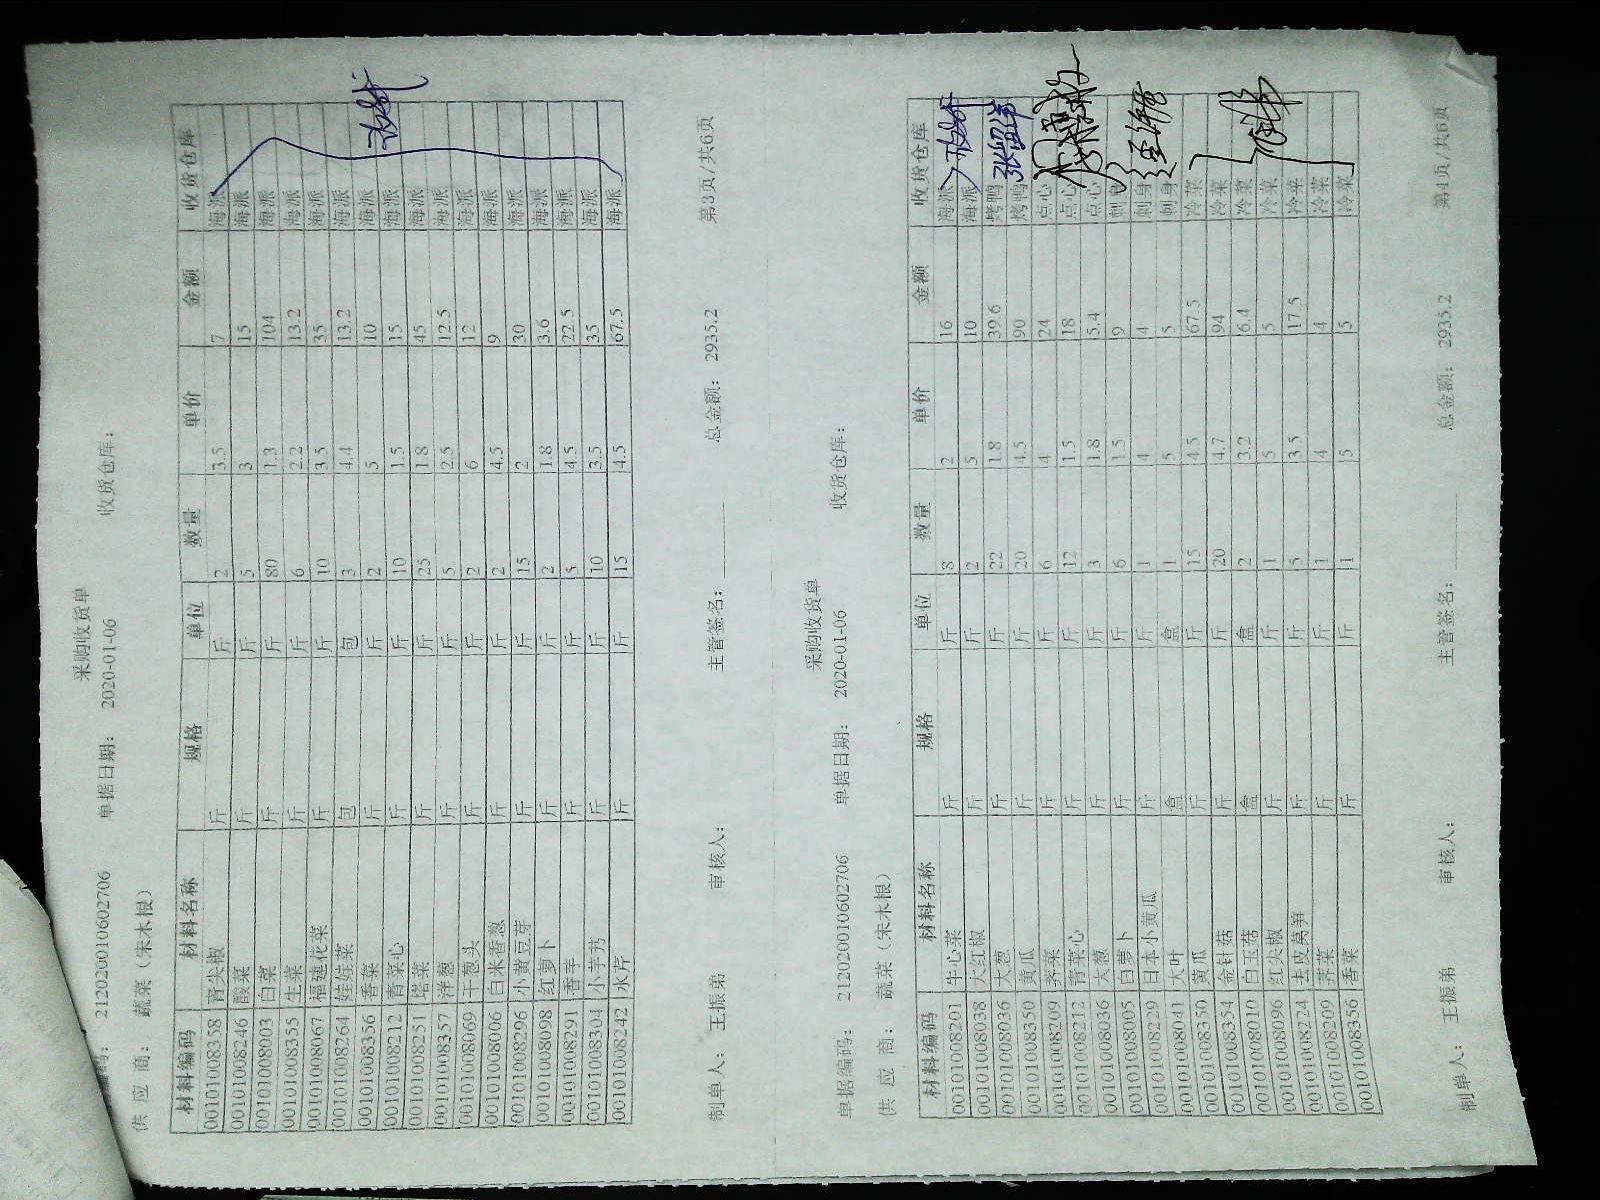 采购收货单
编码： 212020010602706 单据日期： 2020-01-06 收货仓库：
供 应 商： 蔬菜（宋木根）
材料编码 材料名称 规格 单位 数量 单价 金额 收货仓库
00101008358 青尖椒 斤 斤 2 3.5 7 海派
00101008246 酸菜 斤 斤 5 3 15 海派
00101008003 白菜 斤 斤 80 1.3 104 海派
00101008335 生菜 斤 斤 6 2.2 13.2 海派
00101008067 福建花菜 斤 斤 10 3.5 35 海派
00101008264 娃娃菜 包 包 3 4.4 13.2 海派
00101008356 香菜 斤 斤 2 5 10 海派
00101008212 青菜心 斤 斤 10 1.5 15 海派
00101008251 塔菜 斤 斤 25 1.8 45 海派
00101008357 洋葱 斤 斤 5 2.5 12.5 海派
00101008069 干葱头 斤 斤 2 6 12 海派
00101008006 白米香葱 斤 斤 2 4.5 9 海派
00101008296 小黄豆芽 斤 斤 15 2 30 海派
00101008098 红萝卜 斤 斤 2 1.8 3.6 海派
00101008291 香芋 斤 斤 5 4.5 22.5 海派
00101008304 小芋艿 斤 斤 10 3.5 35 海派
00101008242 水芹 斤 斤 15 4.5 67.5 海派
制单人： 王振弟 审核人： 主管签名： 总金额： 2935.2 第3页/共6页
采购收货单
单据编码： 212020010602706 单据日期： 2020-01-06 收货仓库：
供 应 商： 蔬菜（宋木根）
材料编码 材料名称 规格 单位 数量 单价 金额 收货仓库
00101008201 牛心菜 斤 斤 8 2 16 海派
00101008038 大红椒 斤 斤 2 5 10 海派
00101008036 大葱 斤 斤 22 1.8 39.6 烤鸭
00101008350 黄瓜 斤 斤 20 4.5 90 烤鸭 张留洋
00101008209 荠菜 斤 斤 6 4 24 点心
00101008212 青菜心 斤 斤 12 1.5 18 点心
00101008036 大葱 斤 斤 3 1.8 5.4 点心
00101008005 白萝卜 斤 斤 6 1.5 9 刺身
00101008229 日本小黄瓜 斤 斤 1 4 4 刺身
00101008041 大叶 盒 盒 1 5 5 刺身
00101008350 黄瓜 斤 斤 15 4.5 67.5 冷菜
00101008354 金针菇 斤 斤 20 4.7 94 冷菜
00101008010 白玉菇 盒 盒 2 3.2 6.4 冷菜
00101008096 红尖椒 斤 斤 1 5 5 冷菜
00101008224 去皮莴笋 斤 斤 5 3.5 17.5 冷菜
00101008209 荠菜 斤 斤 1 4 4 冷菜
00101008356 香菜 斤 斤 1 5 5 冷菜
制单人： 王振弟 审核人： 主管签名： 总金额： 2935.2 第4页/共6页